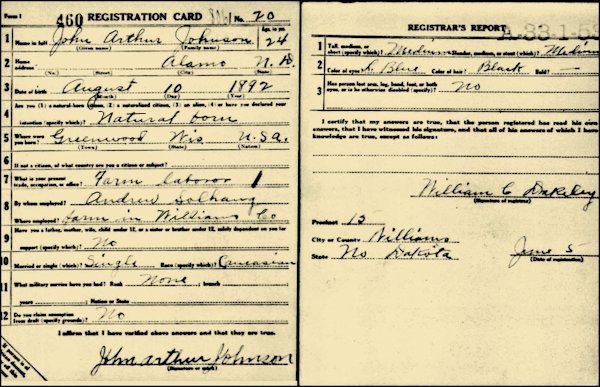 Form 1 460 REGISTRATION CARD No. 20
1 Name in full John Arthur Johnson Age, in yrs. 24
(Given name) (Family name)
2 Home address Alamo N. D.
(No.) (Street) (City) (State)
3 Date of birth August 10 1892
(Month) (Day) (Year)
4 Are you (1) a natural-born citizen, (2) a naturalized citizen, (3) an alien, (4) or have you declared your
intention (specify which)? Natural born
5 Where were you born? Greenwood Wis U.S.A.
(Town) (State) (Nation)
6 If not a citizen, of what country are you a citizen or subject?
7 What is your present trade, occupation, or office? Farm laborer 1
8 By whom employed? Andrew Solhaug
Where employed? farm in Williams Co
9 Have you a father, mother, wife, child under 12, or a sister or brother under 12, solely dependent on you for
support (specify which)? No
10 Married or single (which)? Single Race (specify which)? Caucasian
11 What military service have you had? Rank None ; branch
years ; Nation or State
12 Do you claim exemption from draft (specify grounds)? No
I affirm that I have verified above answers and that they are true.
John Arthur Johnson
(Signature or mark)
If person is of
REGISTRAR'S REPORT
1 Tall, medium, or short (specify which)? Medium Slender, medium, or stout (which)? Medium
2 Color of eyes? L Blue Color of hair? Black Bald? —
3 Has person lost arm, leg, hand, foot, or both eyes, or is he otherwise disabled (specify)? No
I certify that my answers are true, that the person registered has read his own
answers, that I have witnessed his signature, and that all of his answers of which I have
knowledge are true, except as follows:
William C Dakeley
(Signature of registrar)
Precinct 12
City or County Williams
State No Dakota June 5
(Date of registration)